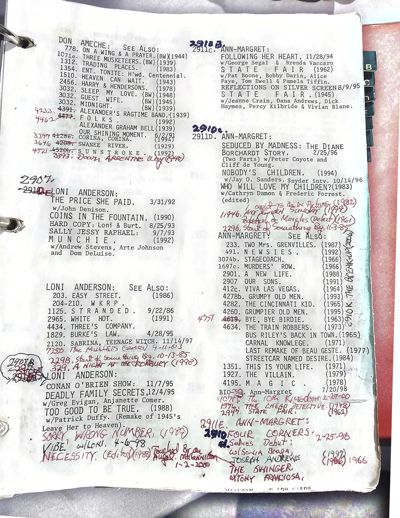 DON AMECHE: SEE ALSO:
778. ON A WING & A PRAYER.(BW)(1944)
THREE MUSKETEERS.(BW)(1939)
1312. TRADING PLACES. (1983)
1364. ENT. TONITE: H'wd. Centennial.
1510. HEAVEN CAN WAIT. (1943)
3032. HARRY & HENDERSONS. (1978)
3032. SLEEP MY LOVE. (BW)(1948)
3032. GUEST WIFE. (BW)(1945)
3032. MIDNIGHT. (BW)
ALEXANDER'S RAGTIME BAND.(1939)
4462 FOLKS
ALEXANDER GRAHAM BELL(1939)
OUR SHINING MOMENT. 6/2/93
CORINA, CORINA.
SWANEE RIVER.
SUNSTROKE (1992)
DOWN ARGENTINE WAY (BW)
2907.
LONI ANDERSON:
THE PRICE SHE PAID. 3/31/92
w/John Denison.
COINS IN THE FOUNTAIN. (1990)
HARD COPY: Loni & Burt. 8/25/93
SALLY JESSY RAPHAEL: 9/7/93
MUNCHIE. (1992)
w/Andrew Stevens, Arte Johnson
and Dom DeLuise.
LONI ANDERSON: SEE ALSO:
203. EASY STREET. (1986)
204-210. WKRP.
1125. STRANDED. 9/22/86
2965. WHITE HOT. (1991)
4434. THREE'S COMPANY.
1829. BURKE'S LAW. 4/28/95
2120. SABRINA, TEENAGE WITCH. 11/14/97
2298. Salute of Something Big. 10-13-85
329. A NIGHT AT THE ROXBURY (1998)
LONI ANDERSON:
CONAN O'BRIEN SHOW: 11/7/95
DEADLY FAMILY SECRETS,12/4/95
w/Greg Evigan, Anjanette Comer.
TOO GOOD TO BE TRUE. (1988)
w/Patrick Duffy. (Remake of 1945's
Leave Her to Heaven).
SORRY, WRONG NUMBER. (1989)
VIBE w/LONI. 4-6-98
NECESSITY. (1988)
1-2-2000
2910B.
2911c. ANN-MARGRET:
FOLLOWING HER HEART. 11/28/94
w/George Segal & Brenda Vaccaro
STATE FAIR. (1962)
w/Pat Boone, Bobby Darin, Alice
Faye, Tom Ewell & Pamela Tiffin.
REFLECTIONS ON SILVER SCREEN/8/9/95
STATE FAIR. (1945)
w/Jeanne Crain, Dana Andrews, Dick
Haymes, Percy Kilbride & Vivian Blaine.
2910c.
2911d. ANN-MARGRET:
SEDUCED BY MADNESS: THE DIANE
BORCHARDT STORY. 2/25/96
(Two Parts) w/Peter Coyote and
Cliff de Young.
NOBODY'S CHILDREN. (1994)
w/Jay O. Sanders. Snyder Intv. 10/14/96
WHO WILL LOVE MY CHILDREN?(1983)
w/Cathryn Damon & Frederic Forrest.
2298. Salute of Something Big. 10-13-85
ANN-MARGRET: SEE ALSO:
233. TWO MRS. GRENVILLES. (1987)
491. NEWSIES. (1992)
3074b. STAGECOACH. (1966)
1697c. MURDERERS' ROW. (1966)
2901. A NEW LIFE. (1988)
2907 OUR SONS. (1991)
412c. VIVA LAS VEGAS. (1964)
4278b. GRUMPY OLD MEN. (1993)
4282. THE CINCINNATI KID. (1965)
4260. GRUMPIER OLD MEN. (1995)
4619. BYE, BYE BIRDIE. (1963)
4634. THE TRAIN ROBBERS. (1973)
BUS RILEY'S BACK IN TOWN. (1965)
CARNAL KNOWLEGE. (1971)
LAST REMAKE OF BEAU GESTE. (1977)
STREETCAR NAMED DESIRE. (1984)
1351. THIS IS YOUR LIFE. (1971)
1927. THE VILLAIN. (1979)
4195. MAGIC. (1978)
BIO-98. Ann-Margret 7/20/98
2949. STATE FAIR. (1962)
2911E. ANN-MARGRET:
2910d. FOUR CORNERS. 2-25-98
Series Debut:
w/Sonia Braga
JOSEPH ANDREWS (1977)
THE SWINGER. 1966
w/TONY FRANCIOSA.